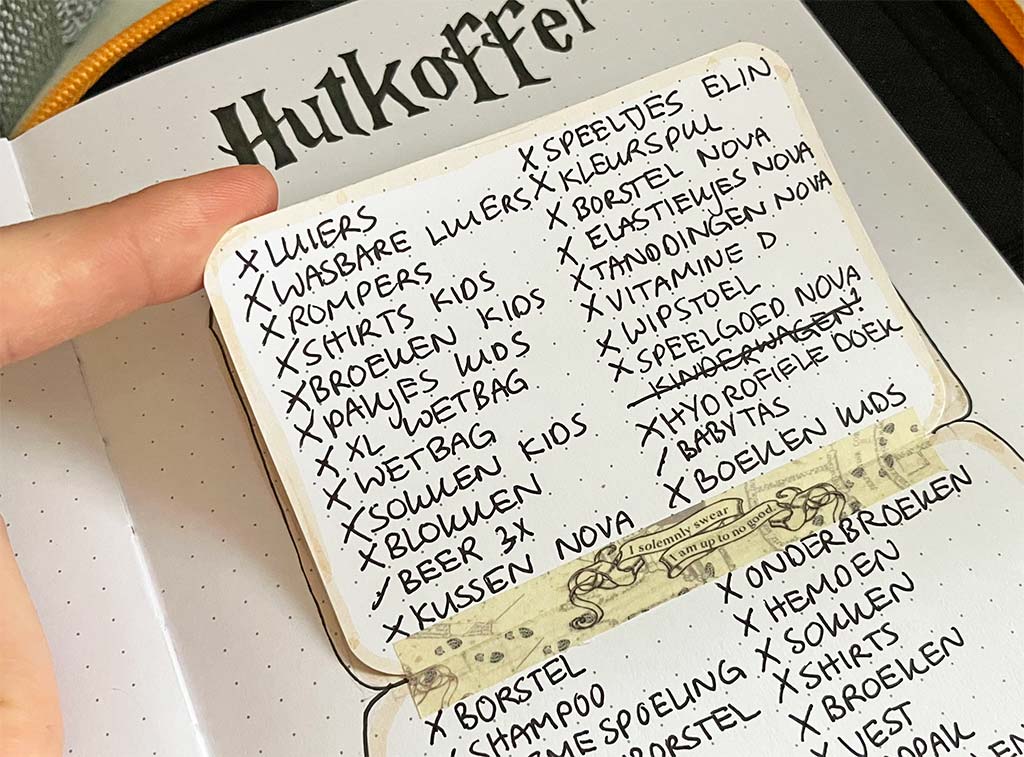 Hutkoffer
X LUIERS
X WASBARE LUIERS
X ROMPERS
X SHIRTS KIDS
X BROEKEN KIDS
X PAKJES KIDS
X XL WETBAG
X WETBAG
X SOKKEN KIDS
X BLOKKEN
/ BEER 3X
X KUSSEN NOVA
X SPEELTJES ELIN
X KLEURSPUL
X BORSTEL NOVA
X ELASTIEKJES NOVA
X TANDDINGEN NOVA
X VITAMINE D
X WIPSTOEL
X SPEELGOED NOVA
KINDERWAGEN!
X HYDROFIELE DOEK
/ BABYTAS
X BOEKEN KIDS
I solemnly swear
I am up to no good
X BORSTEL
SHAMPOO
SPOELING
BORSTEL
X ONDERBROEKEN
X HEMDEN
X SOKKEN
X SHIRTS
X BROEKEN
X VEST